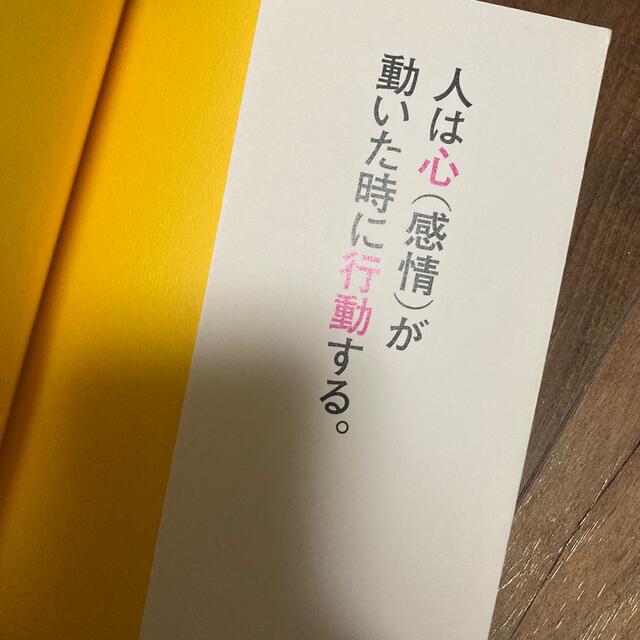 人は心（感情）が
動いた時に行動する。